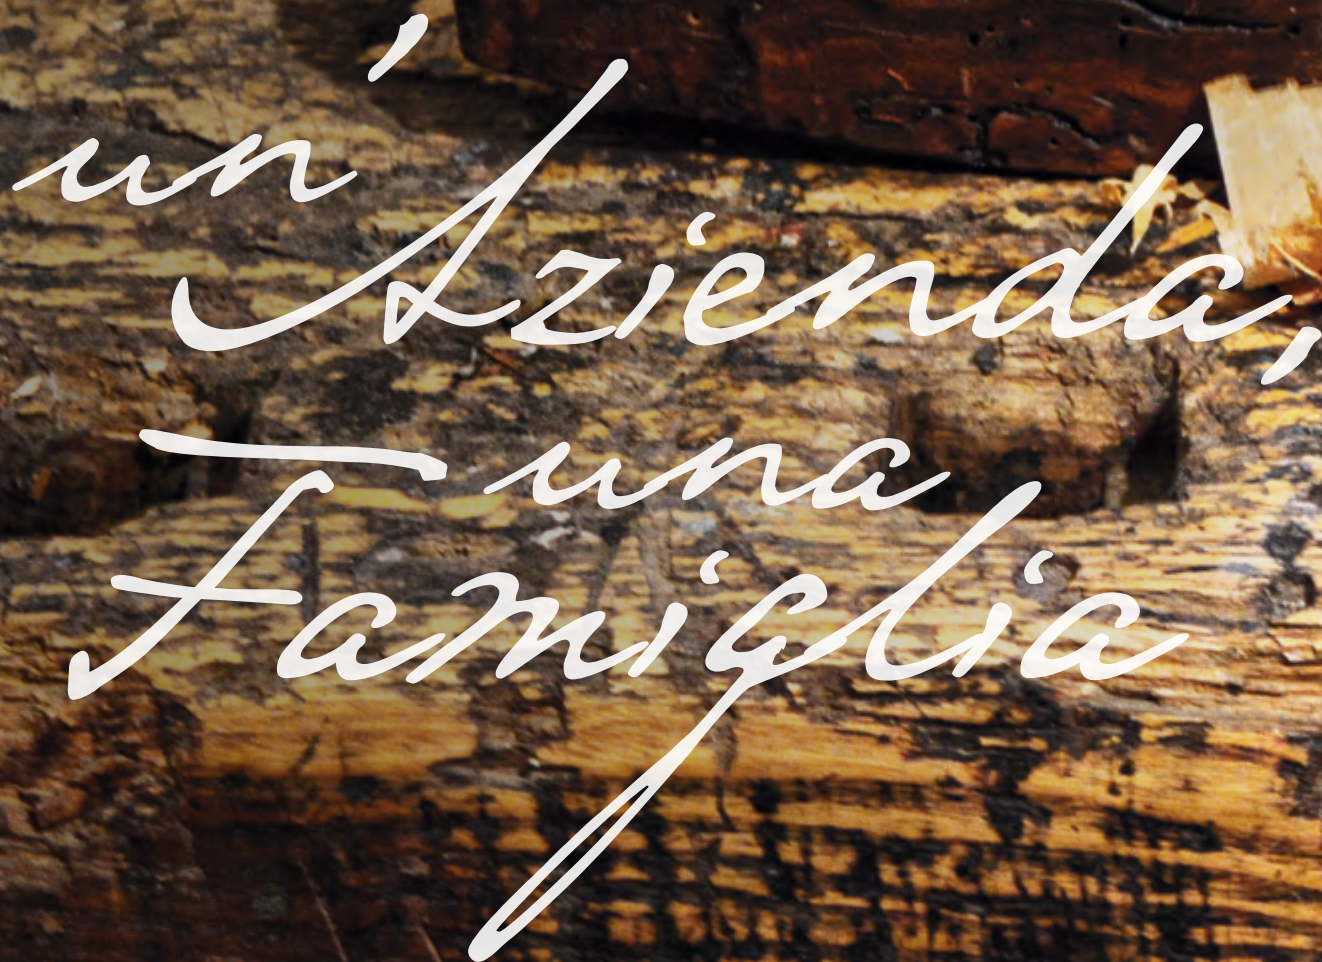 un'Azienda,
una
Famiglia